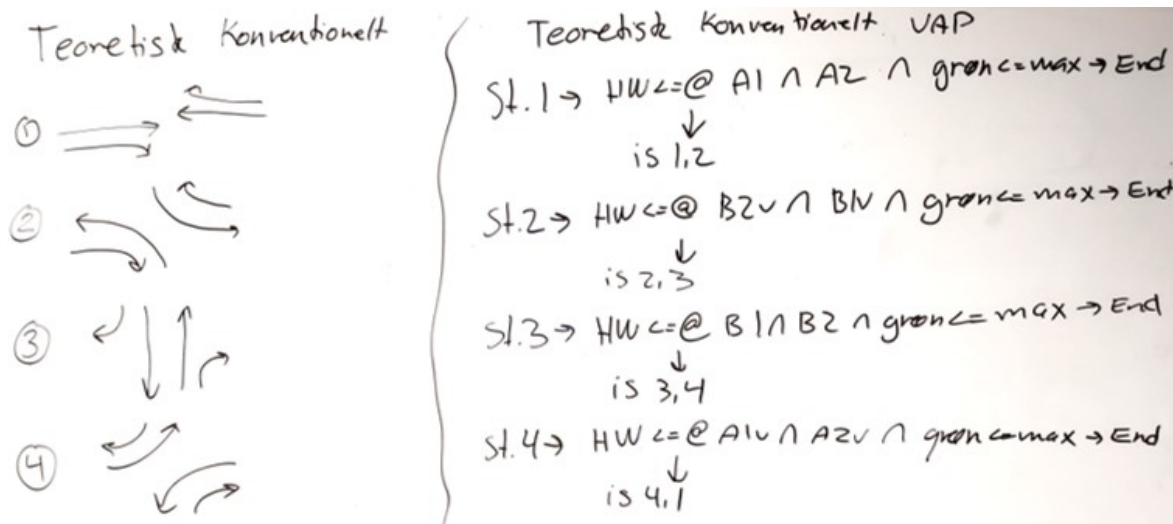 Teoretisk Konventionelt
①
②
③
④
Teoretisk Konventionelt VAP
St.1 → HW <= @ A1 ∩ A2 ∩ grøn <= max → End
↓
is 1,2
St.2 → HW <= @ B2v ∩ B1v ∩ grøn <= max → End
↓
is 2,3
St.3 → HW <= @ B1 ∩ B2 ∩ grøn <= max → End
↓
is 3,4
St.4 → HW <= @ A1v ∩ A2v ∩ grøn <= max → End
↓
is 4,1